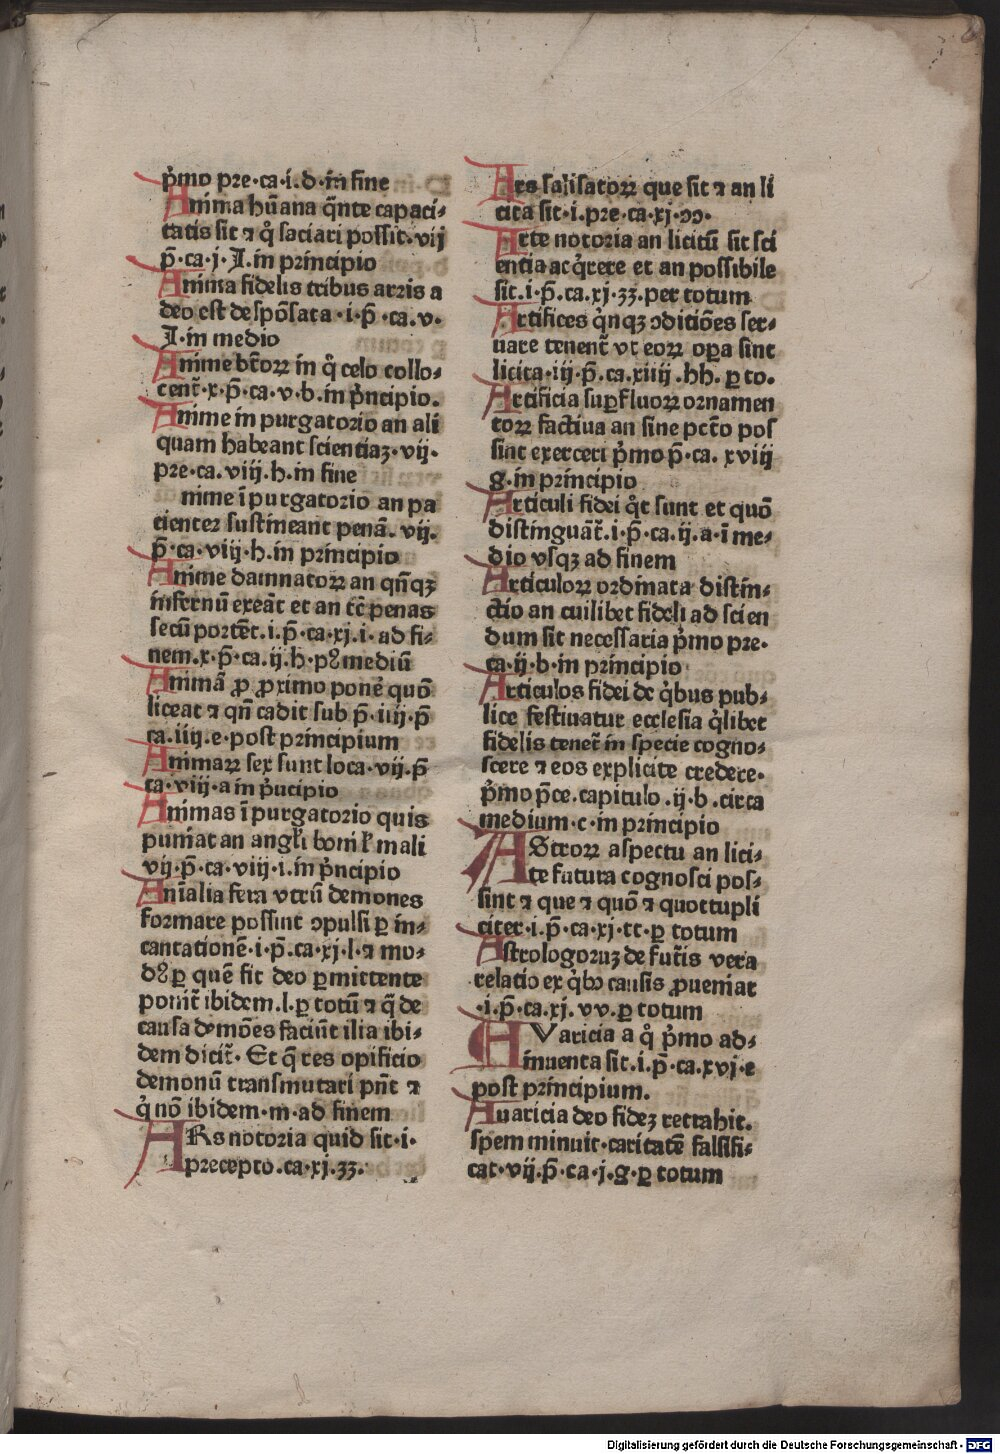 p̾mo pre·ca·i.d·in fine
Anima hūana q̄nte capaci-
tatis sit ⁊ q̊ saciari possit. vij
p̄·ca·j·I.in principio
Anima fidelis tribus arris a
deo est despōsata·i·p̄·ca.v.
I·in medio
Anime bt̄oꝝ in q̊ celo collo-
cent̄·x·p̄·ca·v·b.in p̾ncipio.
Anime in purgatorio an ali
quam habeant scientiaꝫ·vij.
pre·ca.viij.h.in fine
nime ī purgatorio an pa
cienter sustineant penā. vij.
p̄·ca·viij·h.in principio
Anime damnatoꝝ an qn̄qꝫ
infernū exeāt et an tc̄ penas
secū portēt.i.p̄·ca·xj.i·ad fi-
nem.x·p̄·ca.ij.h·p⁹ mediū
Animā ꝓ ꝓximo pone̾ quō
liceat ⁊ qn̄ cadit sub p̄·iiij·p̄
ca.iiij.e·post principium
Animaꝝ sex sunt loca·vij.p̄
ca·viij·a in p̾ncipio
Animas ī purgatorio quis
puniat an angl̄i boni l̄ mali
vij·p̄·ca·viij·i.in p̾ncipio
Anīalia fera vtrū demones
formare possint ↄpulsi ꝑ in-
cantationē·i·p̄·ca·xj·l·⁊ mo-
d⁹ ꝑ quē fit deo ꝑmittente
ponit̄ ibidem.l.ꝑ totū ⁊ q̄ de
causa demōes faciūt ilia ibi-
dem dicit̄. Et q̄ res opificio
demonū transmutari pn̄t ⁊
q̊ nō ibidem·m·ad finem
ARs notoria quid sit·i·
precepto.ca·xj.33.
Ars salisatoꝝ que sit ⁊ an li
cita sit·i.pre·ca·xj·ↄↄ.
Arte notoria an licitū sit sci
entia acq̊rere et an possibile
sit.i·p̄.ca.xj·33.per totum
Artifices q̊nqꝫ ↄditiōes ser-
uare tenent̄ vt eoꝝ oꝑa sint
licita·iij·p̄.ca.xiiij.hh.ꝑ to.
Artificia suꝑfluoꝝ ornamen
toꝝ factiua an sine pctō pos
sint exerceri p̾mo p̄·ca.xviij
g.in principio
Articuli fidei q̊t sunt et quō
distinguāt̄.i·p̄·ca·ij.a·ī me-
dio vsqꝫ ad finem
Articuloꝝ ordinata distin-
ctio an cuilibet fideli ad scien
dum sit necessaria p̾mo pre·
ca·ij·b·in principio
Articulos fidei de q̊bus pub-
lice festiuatur ecclesia q̊libet
fidelis tenet̄ in specie cogno-
scere ⁊ eos explicite credere·
p̾mo p̄ce.capitulo.ij·b.circa
medium·c·in principio
AStroꝝ aspectu an lici-
te futura cognosci pos-
sint ⁊ que ⁊ quō ⁊ quottupli
citer·i.p̄·ca·xj·tt·ꝑ totum
Astrologoruꝫ de fut̄is vera
relatio ex q̊bꝫ causis ꝓueniat
·i.p̄·ca.xj.vv.ꝑ totum
AVaricia a q̊ p̾mo ad-
inuenta sit.i.p̄·ca.xvj·e
post principium.
Auaricia deo fideꝫ retrahit.
spem minuit·caritatē falsifi-
cat·vij.p̄·ca·j·g·ꝑ totum
Digitalisierung gefördert durch die Deutsche Forschungsgemeinschaft · DFG